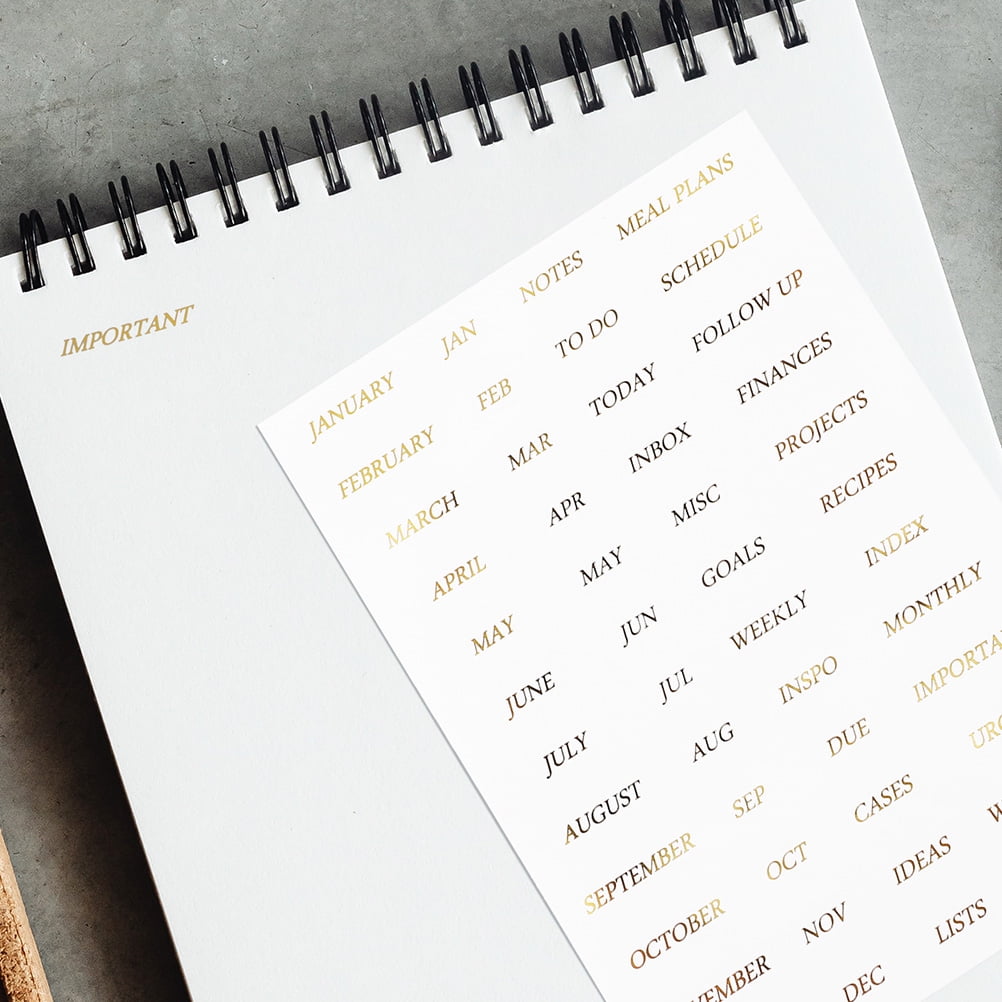 IMPORTANT
JANUARY JAN NOTES MEAL PLANS
FEBRUARY FEB TO DO SCHEDULE
MARCH MAR TODAY FOLLOW UP
APRIL APR INBOX FINANCES
MAY MAY MISC PROJECTS
JUNE JUN GOALS RECIPES
JULY JUL WEEKLY INDEX
AUGUST AUG INSPO MONTHLY
SEPTEMBER SEP DUE IMPORTA
OCTOBER OCT CASES URG
VEMBER NOV IDEAS W
DEC LISTS